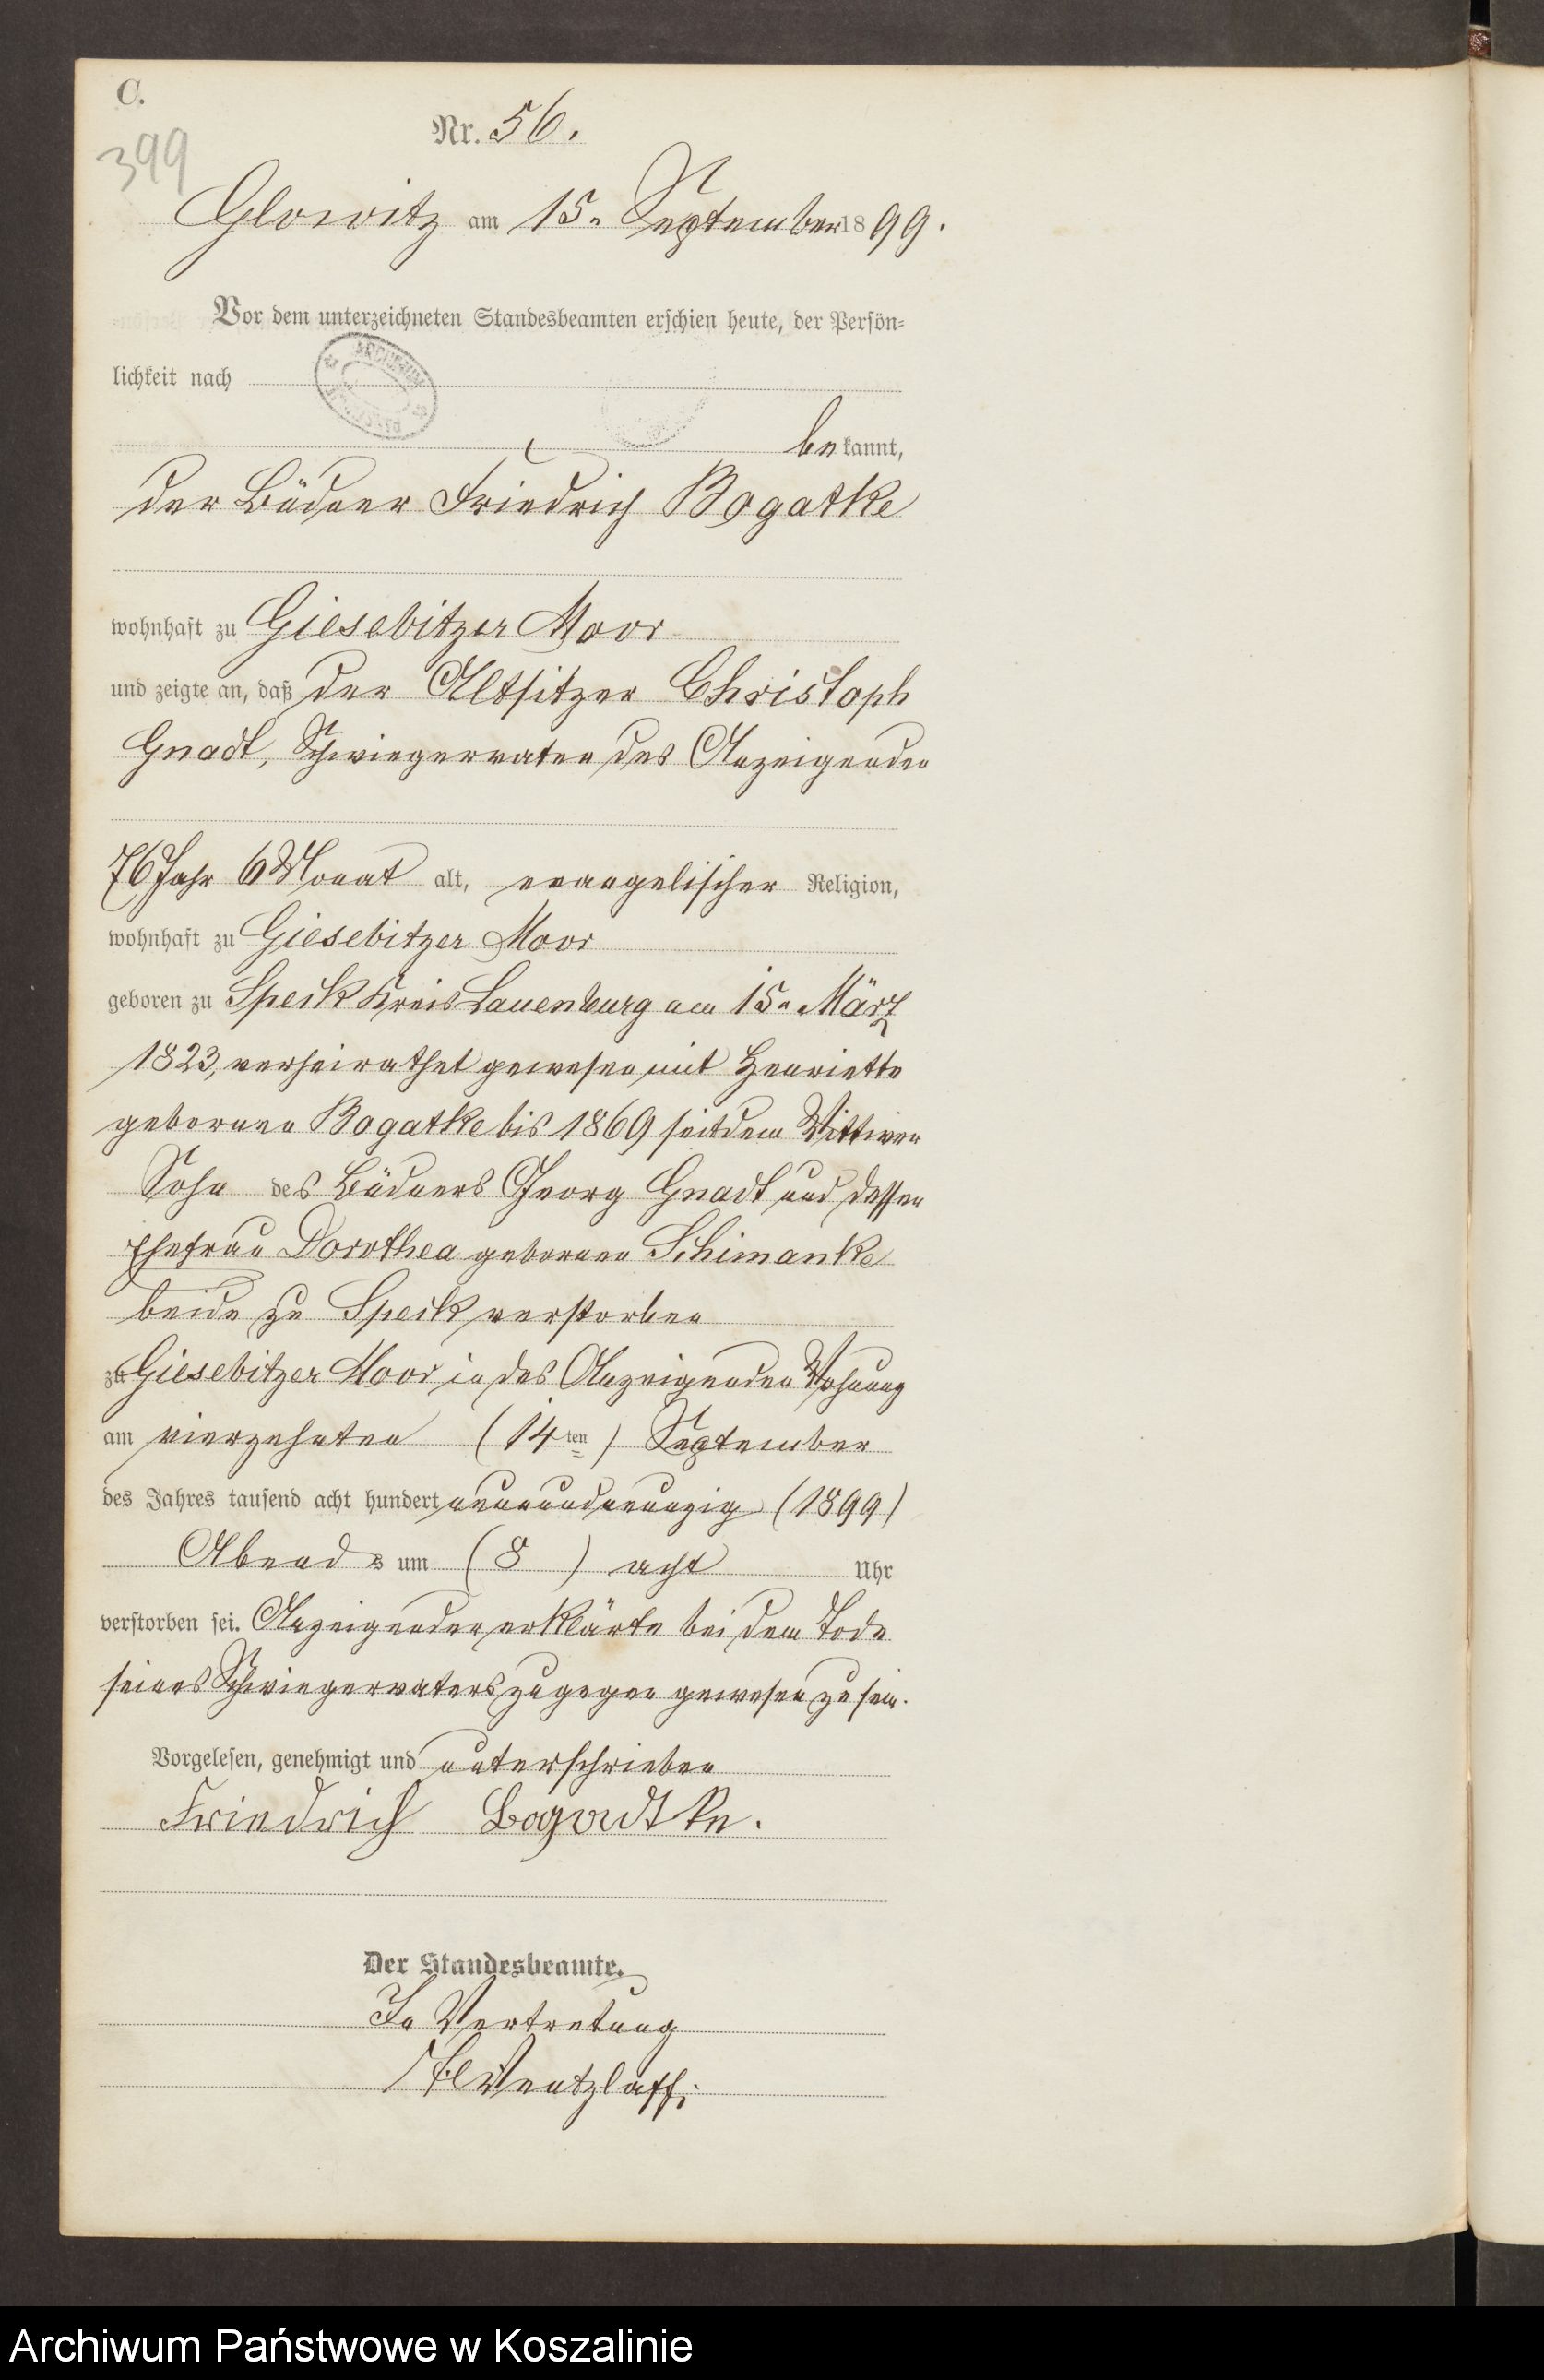 C.
399
Nr. 56.
Glowitz am 15. September 1899.
Vor dem unterzeichneten Standesbeamten erschien heute, der Persön-
lichkeit nach
bekannt,
der Büdner Friedrich Bogatke
wohnhaft zu Giesebitzer Moor
und zeigte an, daß der Altsitzer Christoph
Gnadt, Schwiegervater des Anzeigenden
76 Jahr 6 Monat alt, evangelischer Religion,
wohnhaft zu Giesebitzer Moor
geboren zu Speck Kreis Lauenburg am 15. März
1823, verheirathet gewesen mit Henriette
geborenen Bogatke bis 1869 seitdem Wittwer
Sohn des Büdners Georg Gnadt und dessen
Ehefrau Dorothea geborenen Schimanke
beide zu Speck verstorben
zu Giesebitzer Moor in des Anzeigenden Wohnung
am vierzehnten (14ten) September
des Jahres tausend acht hundert neunundneunzig (1899)
Abends um (8) acht Uhr
verstorben sei. Anzeigender erklärte bei dem Tode
seines Schwiegervaters zugegen gewesen zu sein.
Vorgelesen, genehmigt und unterschrieben
Friedrich Bogadtke.
Der Standesbeamte.
In Vertretung
Wentzlaff.
Archiwum Państwowe w Koszalinie